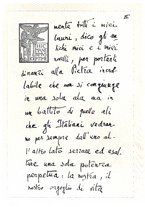 mente tutti i miei
lauri, dico gli an
tichi miei e i miei
novelli, per portarli
dinanzi alla Pietra incrol
labile che ma si congiunge
in una sola ala ma in
un battito di quelo ali
che gli Italiani vedran
no per sempre dall'uno al-
l'altro lato serrare ed esal
tare una sola potenza
perpetua: la nostra, il
nostro orgoglio di vita